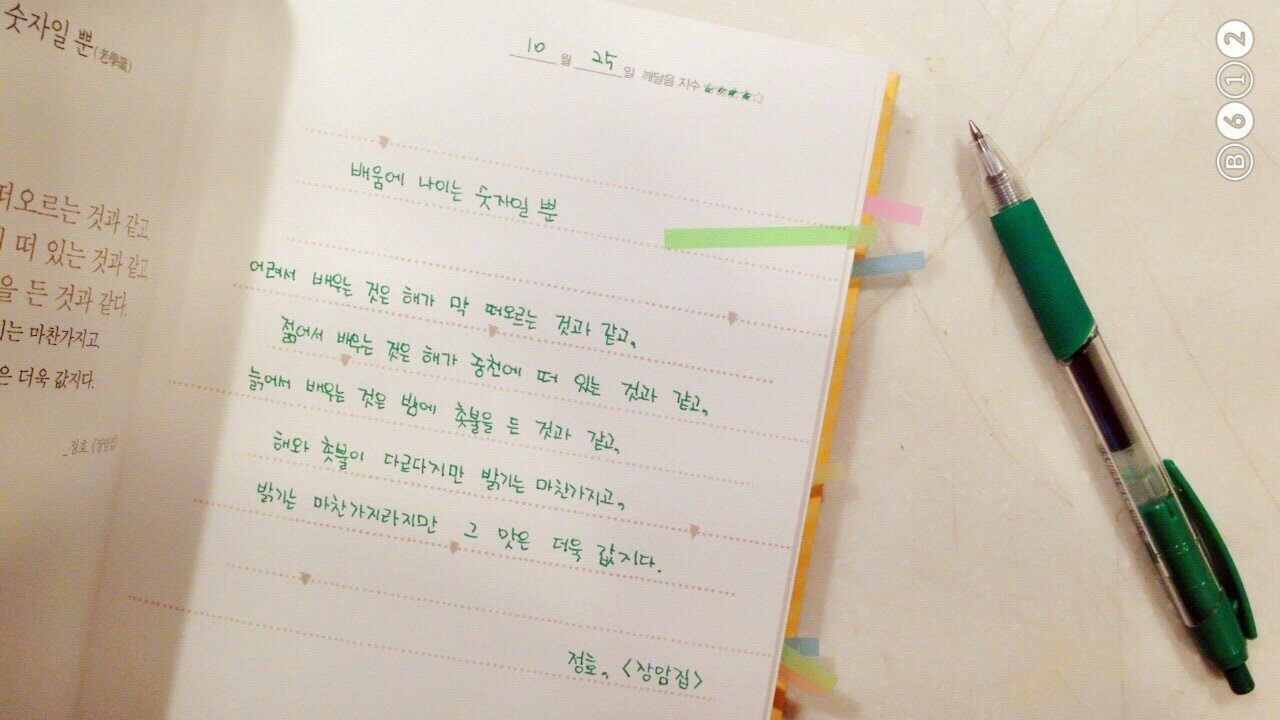 숫자일 뿐(老學箴)
떠오르는 것과 같고
떠 있는 것과 같고
을 든 것과 같다.
기는 마찬가지고,
은 더욱 값지다.
_정호, 《장암집》
10 월 25 일 깨달음 지수 ★★★★☆
배움에 나이는 숫자일 뿐
어려서 배우는 것은 해가 막 떠오르는 것과 같고,
젊어서 배우는 것은 해가 중천에 떠 있는 것과 같고,
늙어서 배우는 것은 밤에 촛불을 든 것과 같고,
해와 촛불이 다르다지만 밝기는 마찬가지고,
밝기는 마찬가지라지만 그 맛은 더욱 값지다.
정호, 〈장암집〉
B612